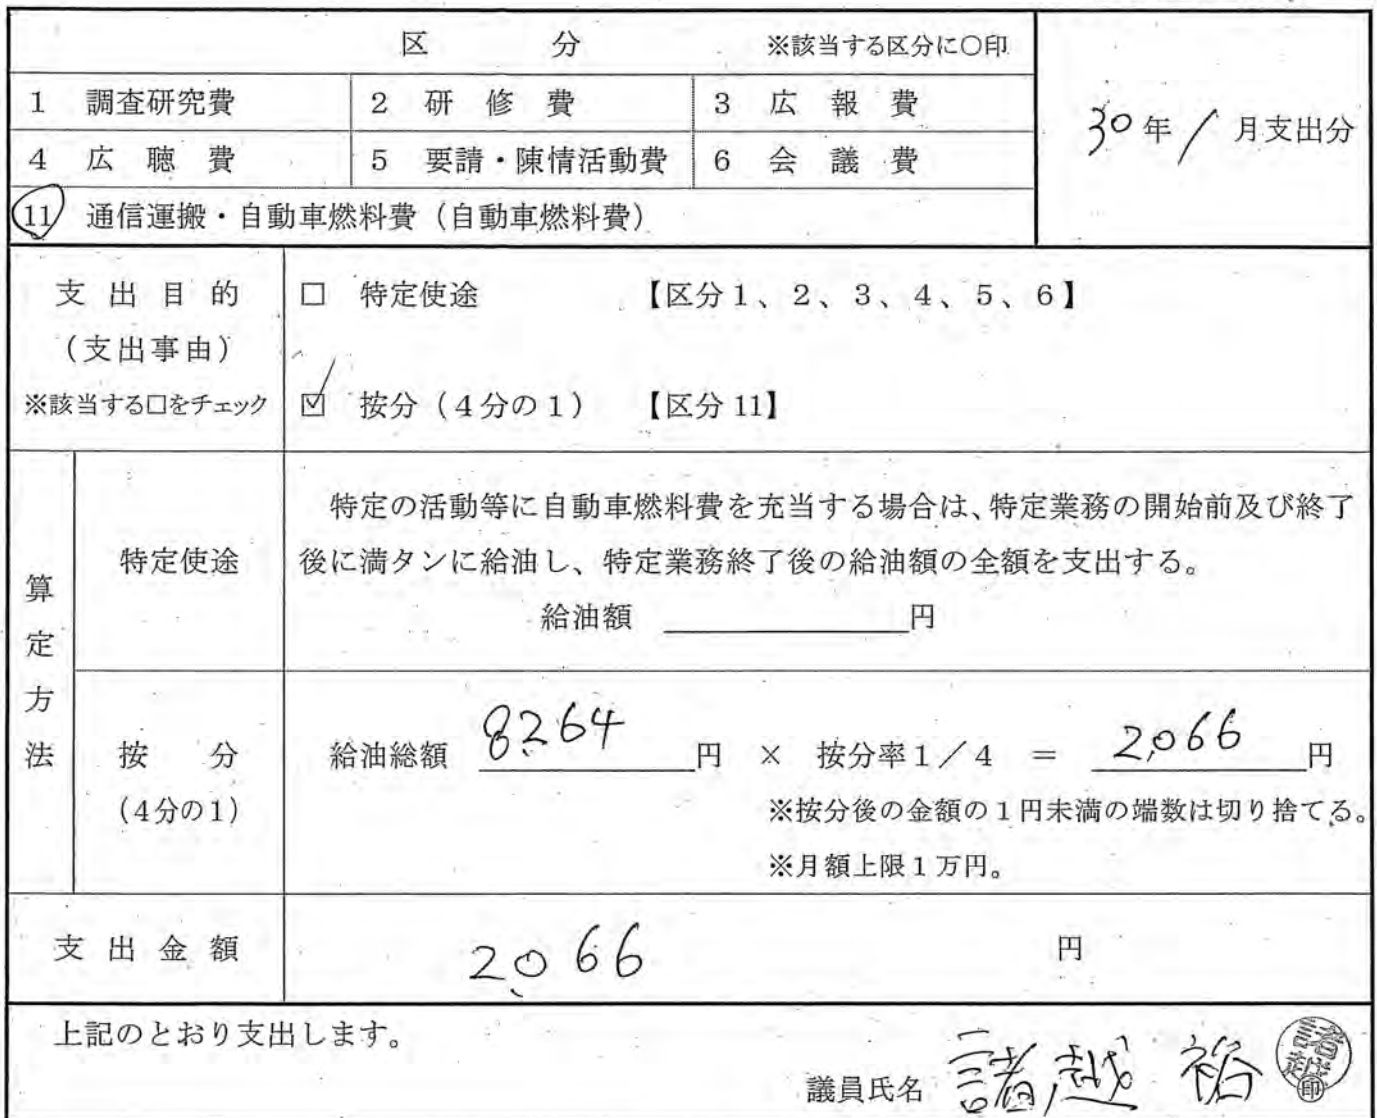 区　　分　　※該当する区分に○印
1　調査研究費　2　研　修　費　3　広　報　費
30年 1 月支出分
4　広　聴　費　5　要請・陳情活動費　6　会　議　費
11　通信運搬・自動車燃料費（自動車燃料費）
支 出 目 的
（支出事由）
※該当する□をチェック
□　特定使途　【区分1、2、3、4、5、6】
☑　按分（4分の1）　【区分11】
算定方法
特定使途
特定の活動等に自動車燃料費を充当する場合は、特定業務の開始前及び終了
後に満タンに給油し、特定業務終了後の給油額の全額を支出する。
給油額　＿＿＿＿円
按　　分
（4分の1）
給油総額　8,264　円　×　按分率1／4　＝　2,066　円
※按分後の金額の1円未満の端数は切り捨てる。
※月額上限1万円。
支 出 金 額　2,066　円
上記のとおり支出します。
議員氏名　諸越　裕　諸越㊞